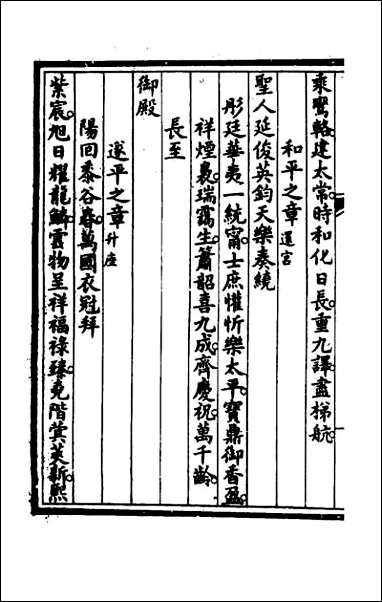 乘鸞輅建太常時和化日長重九譯盡梯航
和平之章還宮
聖人延俊英鈞天樂奏繞
彤廷華夷一統甯士庶懽忻樂太平寶鼎御香盈
祥煙裊瑞靄生簫韶喜九成齊慶祝萬千齡
長至
御殿
遂平之章升座
陽回黍谷春萬國衣冠拜
紫宸旭日耀龍鱗雲物呈祥福祿臻堯階蓂莢新熙